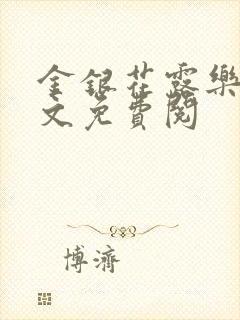 金銀花露樂
文免費閱
博濟